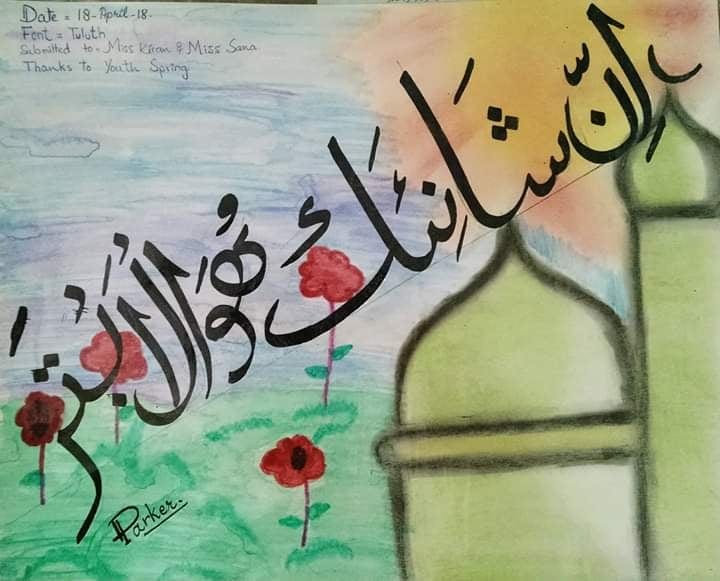 Date = 18-April-18.
Font = Tuluth
Submitted to = Miss Kiran & Miss Sana
Thanks to Youth Spring
إِنَّ شَانِئَكَ هُوَ الْأَبْتَرُ
Parker.